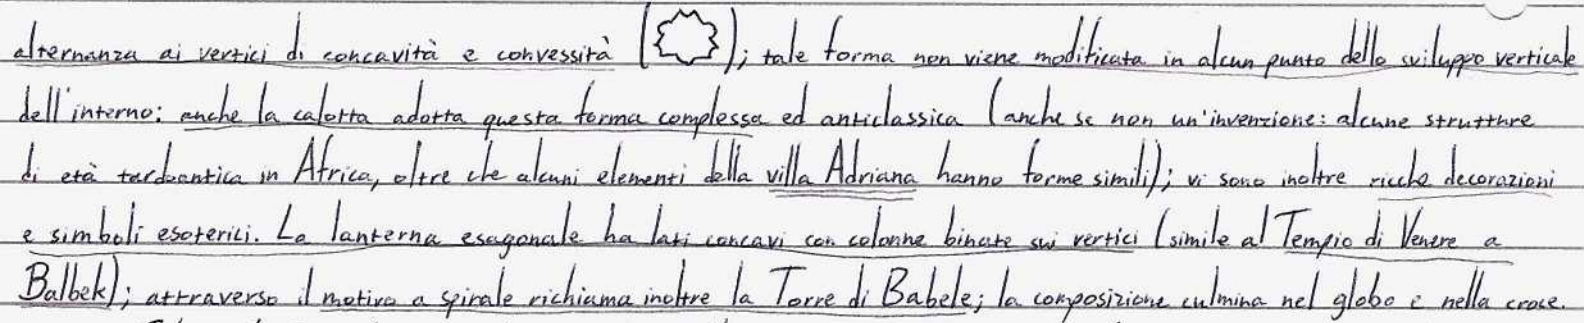 alternanza ai vertici di concavità e convessità ( ); tale forma non viene modificata in alcun punto dello sviluppo verticale
dell'interno: anche la calotta adotta questa forma complessa ed anticlassica (anche se non un'invenzione: alcune strutture
di età tardoantica in Africa, oltre che alcuni elementi della villa Adriana hanno forme simili); vi sono inoltre ricche decorazioni
e simboli esoterici. La lanterna esagonale ha lati concavi con colonne binate sui vertici (simile al Tempio di Venere a
Balbek); attraverso il motivo a spirale richiama inoltre la Torre di Babele; la composizione culmina nel globo e nella croce.